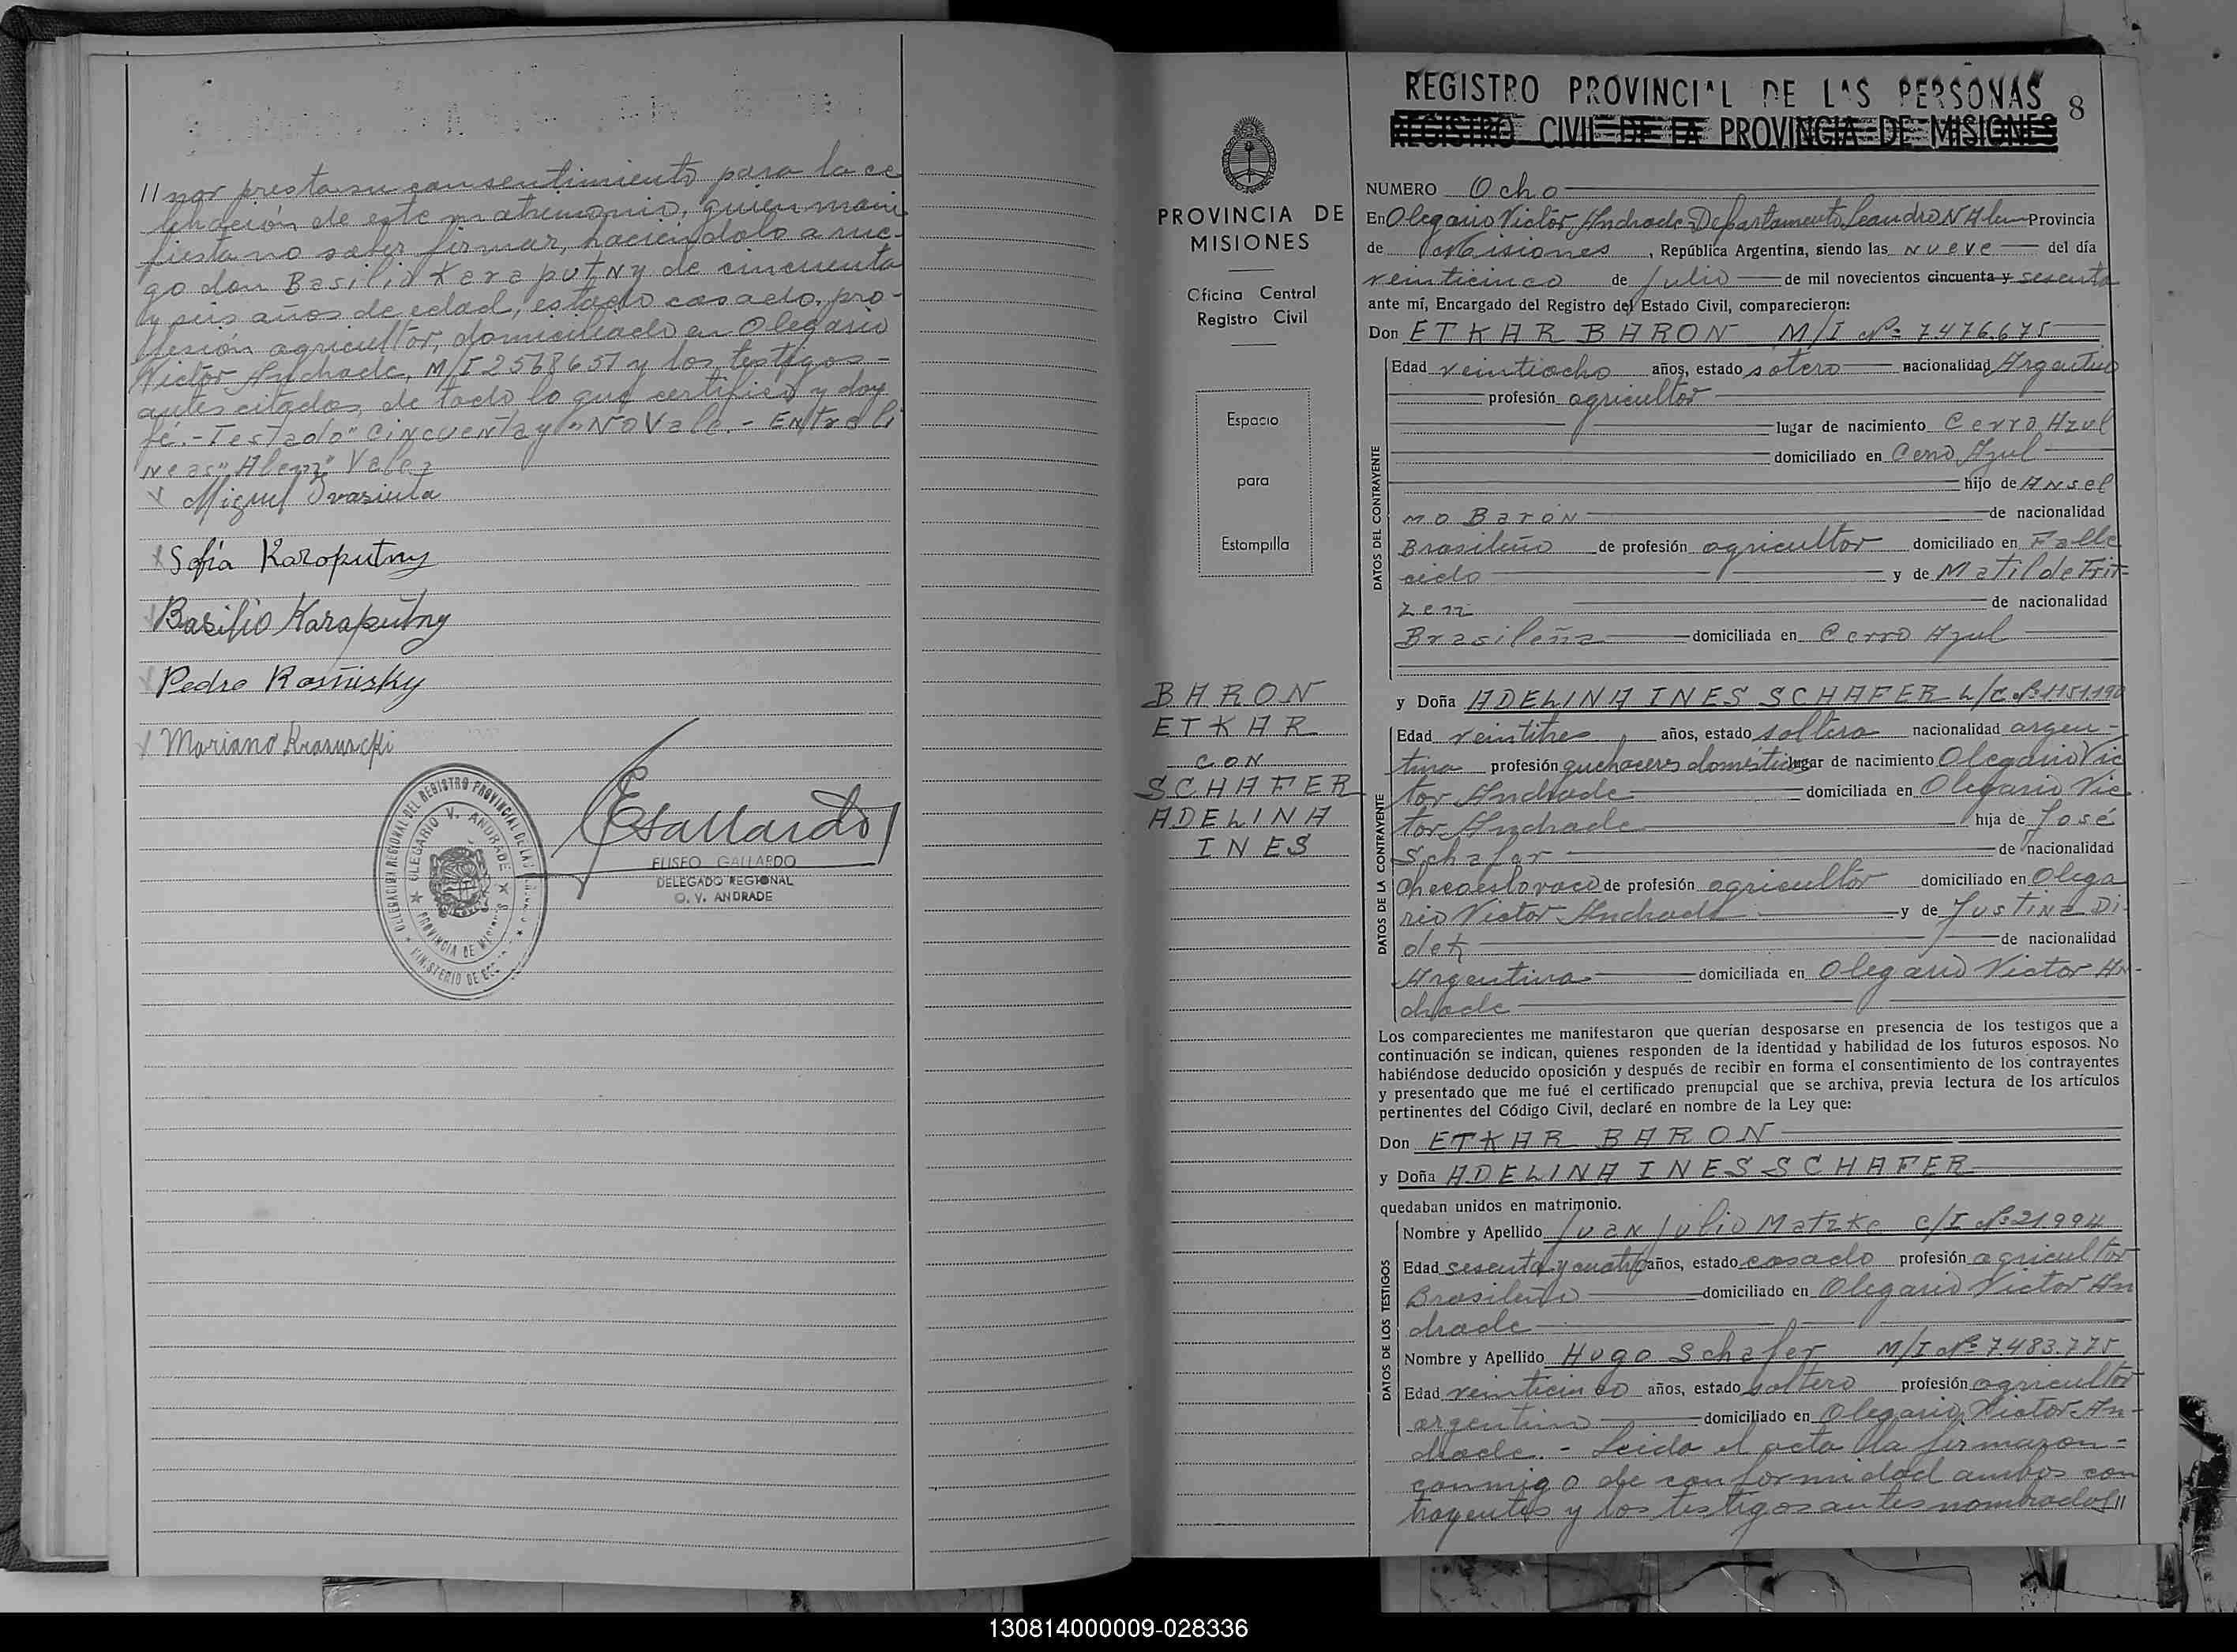 //nor presta su consentimiento para la ce
lebración de este matrimonio, quien mani
fiesta no saber firmar, haciendolo a rue-
go don Basilio Karaputny de cincuenta
y seis años de edad, estado casado, pro-
fesión agricultor, domiciliado en Olegario
Victor Andrade, M/I 2568657 y los testigos-
antes citados, de todo lo que certifico y doy
fé.-Testado "cincuenta y" No Vale.- Entreli
neas "Alem" Vale
Miguel Iwasiuta
Sofía Karaputny
Basilio Karaputny
Pedro
Mariano
DELEGACION REGIONAL DEL REGISTRO PROVINCIAL DE LAS
OLEGARIO V. ANDRADE
PROVINCIA DE
MINISTERIO DE
EGallardo
ELISEO GALLARDO
DELEGADO REGIONAL
O. V. ANDRADE
PROVINCIA DE
MISIONES
Oficina Central
Registro Civil
Espacio
para
Estampilla
BARON
ETKAR
CON
SCHAFER
ADELINA
INES
REGISTRO PROVINCIAL DE LAS PERSONAS
8
REGISTRO CIVIL DE LA PROVINCIA DE MISIONES
NUMERO Ocho
En Olegario Victor Andrade Departamento Leandro N Alem Provincia
de Misiones, República Argentina, siendo las nueve del día
veinticinco de Julio de mil novecientos cincuenta y sesenta
ante mí, Encargado del Registro del Estado Civil, comparecieron:
Don ETKAR BARON M/I Nº 7.476.675
DATOS DEL CONTRAYENTE
Edad veintiocho años, estado sotero nacionalidad Argentino
profesión agricultor
lugar de nacimiento Cerro Azul
domiciliado en Cerro Azul
hijo de Ansel
mo Baron de nacionalidad
Brasileño de profesión agricultor domiciliado en Falle
cido y de Matilde Frit=
zen de nacionalidad
Brasileña domiciliada en Cerro Azul
y Doña ADELINA INES SCHAFER L/C Nº 1151.190
DATOS DE LA CONTRAYENTE
Edad veintitres años, estado soltera nacionalidad argen-
tina profesión quehaceres domésticos lugar de nacimiento Olegario Vic
tor Andrade domiciliada en Olegario Vic
tor Andrade hija de José
Schafer de nacionalidad
checoeslovaco de profesión agricultor domiciliado en Olega
rio Victor Andrade y de Justina Di-
dek de nacionalidad
Argentina domiciliada en Olegario Victor An-
drade
Los comparecientes me manifestaron que querían desposarse en presencia de los testigos que a
continuación se indican, quienes responden de la identidad y habilidad de los futuros esposos. No
habiéndose deducido oposición y después de recibir en forma el consentimiento de los contrayentes
y presentado que me fué el certificado prenupcial que se archiva, previa lectura de los artículos
pertinentes del Código Civil, declaré en nombre de la Ley que:
Don ETKAR BARON
y Doña ADELINA INES SCHAFER
quedaban unidos en matrimonio.
DATOS DE LOS TESTIGOS
Nombre y Apellido Juan Julio Matzke C/I Nº 21.994
Edad sesenta y cuatro años, estado casado profesión agricultor
Brasileño domiciliado en Olegario Victor An
drade
Nombre y Apellido Hugo Schafer M/I Nº 7.483.775
Edad veinticinco años, estado soltero profesión agricultor
argentino domiciliado en Olegario Victor An-
drade.- Leida el acta la firmaron-
conmigo de conformidad ambos con
trayentes y los testigos antes nombrados//
130814000009-028336